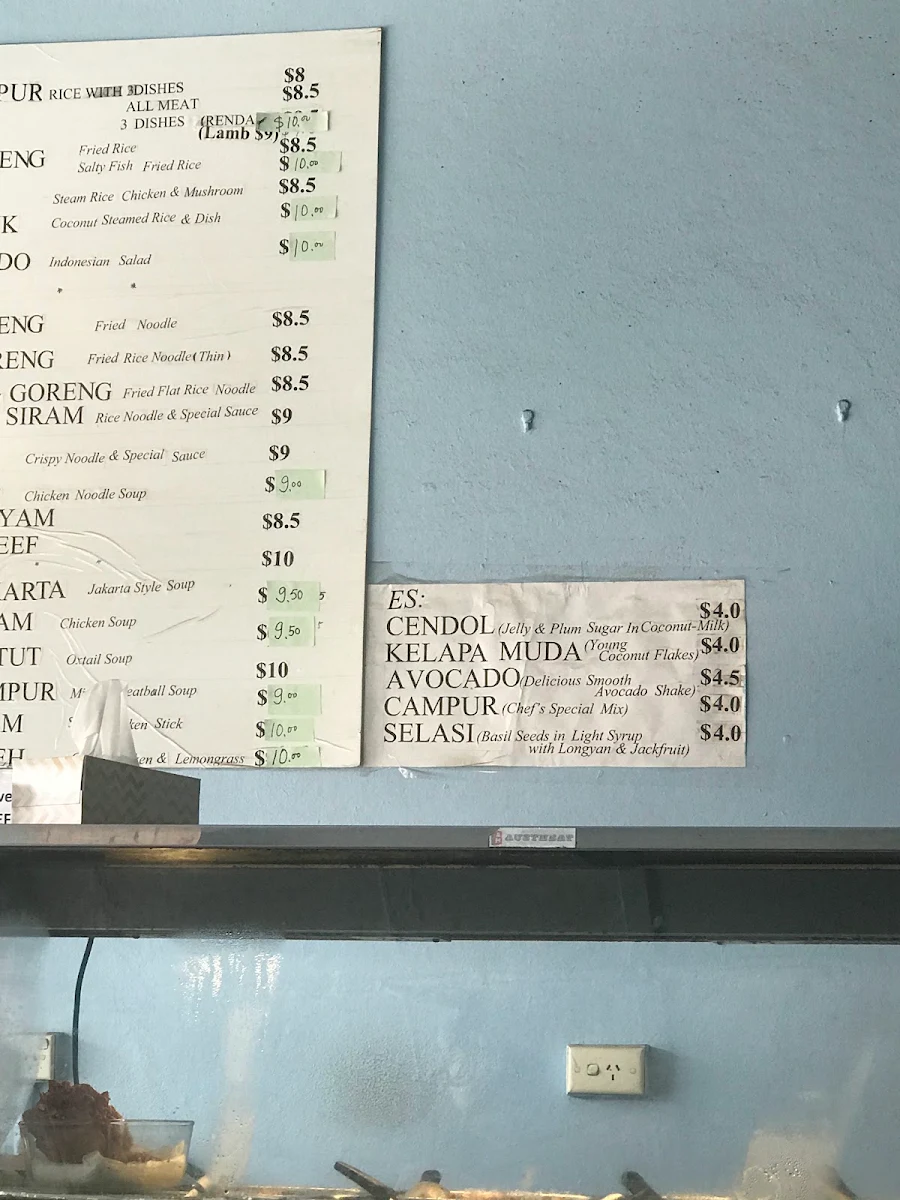 PUR RICE WITH 3DISHES $8
ALL MEAT $8.5
3 DISHES (RENDA $10.00
(Lamb $9)
ENG Fried Rice $8.5
Salty Fish Fried Rice $10.00
Steam Rice Chicken & Mushroom $8.5
K Coconut Steamed Rice & Dish $10.00
DO Indonesian Salad $10.00
ENG Fried Noodle $8.5
RENG Fried Rice Noodle(Thin) $8.5
GORENG Fried Flat Rice Noodle $8.5
SIRAM Rice Noodle & Special Sauce $9
Crispy Noodle & Special Sauce $9
Chicken Noodle Soup $9.00
YAM $8.5
EEF $10
ARTA Jakarta Style Soup $9.50 5
AM Chicken Soup $9.50
TUT Oxtail Soup $10
MPUR eatball Soup $9.00
M ken Stick $10.00
EH en & Lemongrass $10.00
ES:
CENDOL (Jelly & Plum Sugar In Coconut-Milk) $4.0
KELAPA MUDA (Young Coconut Flakes) $4.0
AVOCADO (Delicious Smooth Avocado Shake) $4.5
CAMPUR (Chef's Special Mix) $4.0
SELASI (Basil Seeds in Light Syrup $4.0
with Longyan & Jackfruit)
ve
AUSTHEAT